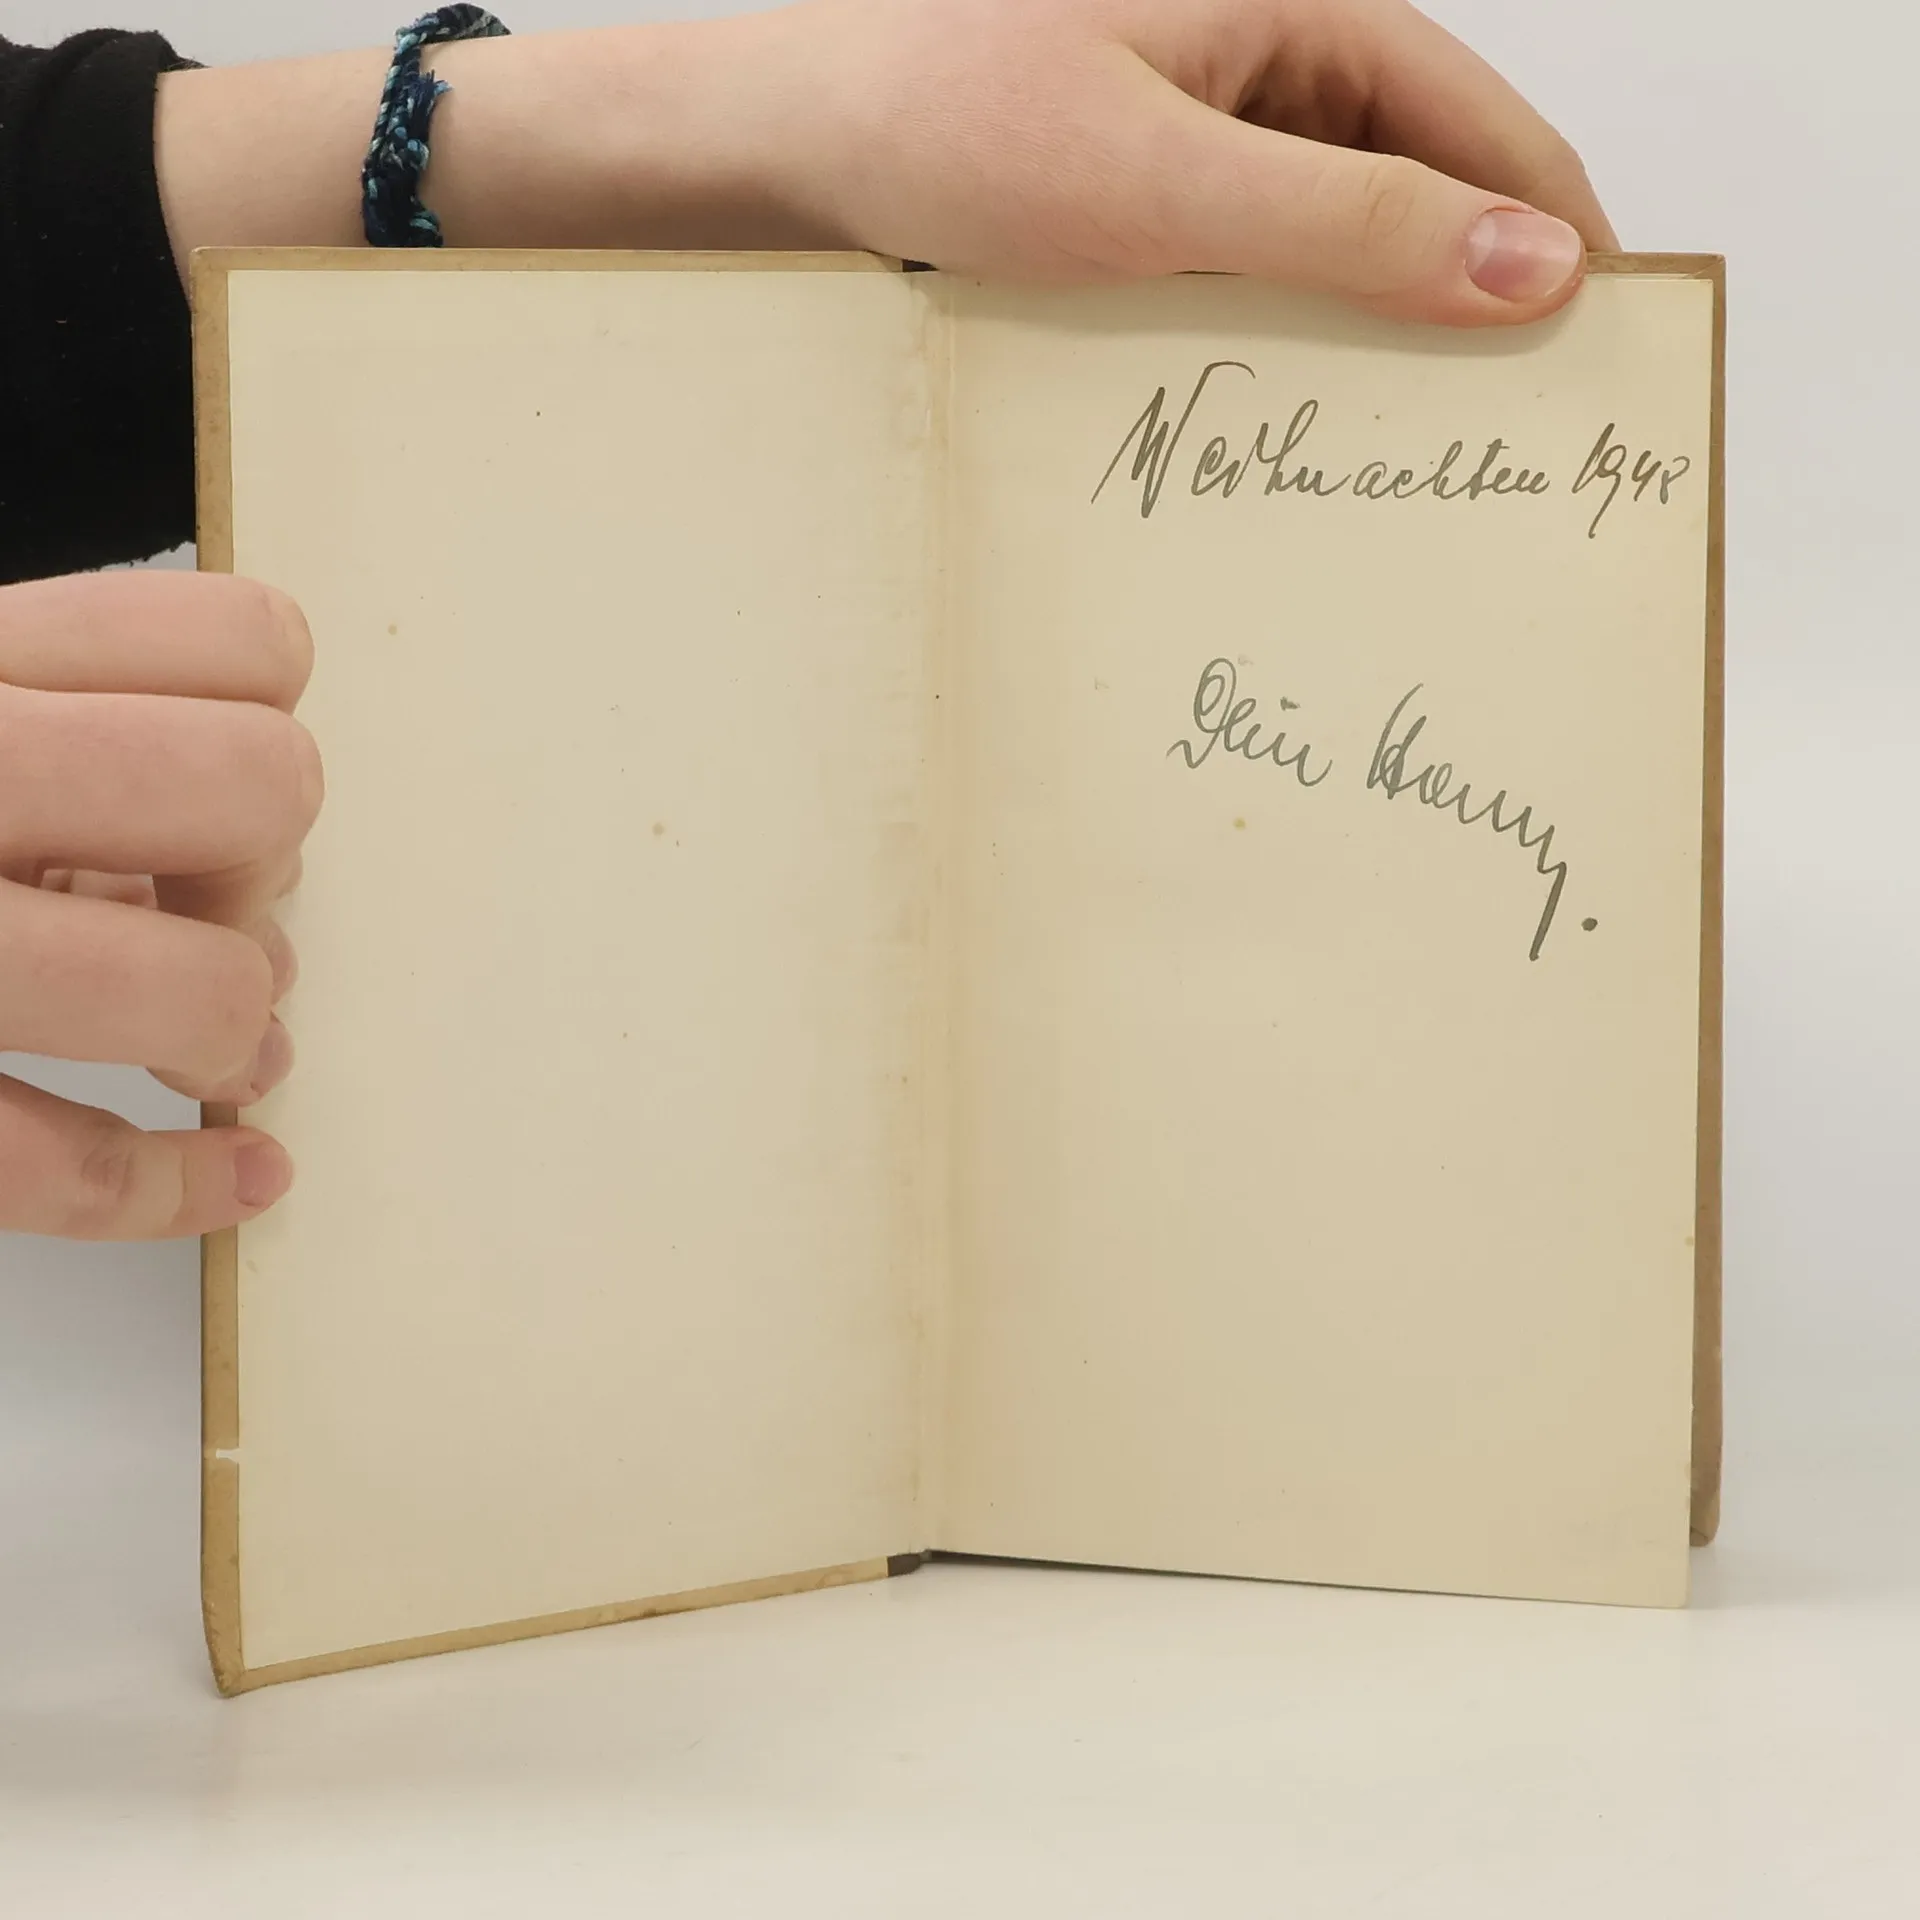 Weihnachten 1948
Dein Hanny.